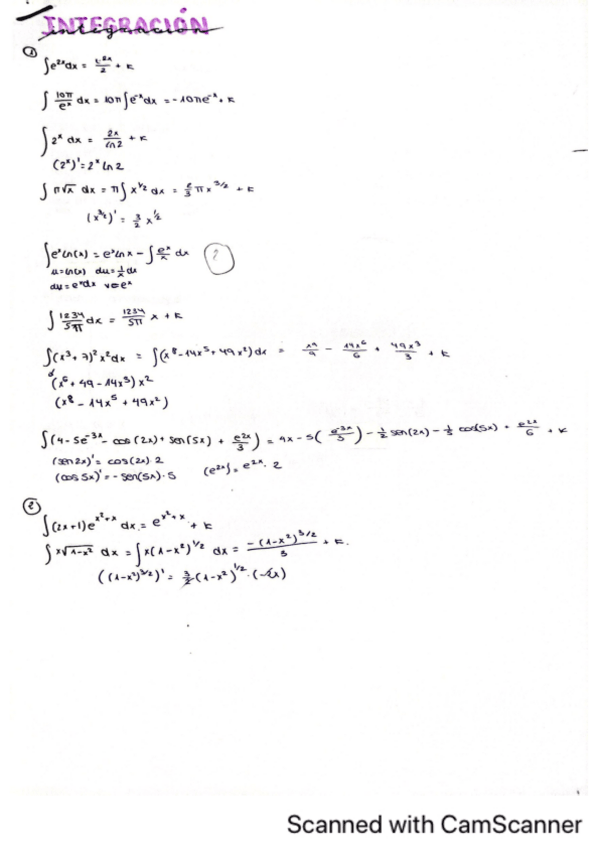 INTEGRACIÓN
integración
①
∫e²ˣdx = e²ˣ/2 + k
∫ 10π/eˣ dx = 10π∫e⁻ˣdx = -10πe⁻ˣ + k
∫2ˣ dx = 2x/ln2 + k
(2ˣ)' = 2ˣ ln2
∫π√x dx = π∫x^1/2 dx = 2/3 πx^3/2 + k
(x^3/2)' = 3/2 x^1/2
∫eˣln(x) = eˣlnx - ∫eˣ/x dx ?
u=ln(x) du=1/x dx
dv=eˣdx v=eˣ
∫1234/5π dx = 1234/5π x + k
∫(x³ - 7)²x²dx = ∫(x⁸ - 14x⁵ + 49x²)dx = x⁹/9 - 14x⁶/6 + 49x³/3 + k
(x⁶ + 49 - 14x³)x²
(x⁸ - 14x⁵ + 49x²)
∫(4 - 5e⁻³ˣ - cos(2x) + sen(5x) + e²ˣ/3) = 4x - 5(e⁻³ˣ/3) - 1/2 sen(2x) - 1/5 cos(5x) + e²ˣ/6 + k
(sen2x)' = cos(2x)·2
(cos5x)' = -sen(5x)·5 (e²ˣ)' = e²ˣ·2
②
∫(2x+1)e^x²+x dx = e^x²+x + k
∫x√1-x² dx = ∫x(1-x²)^1/2 dx = -(1-x²)^3/2/3 + k.
((1-x²)^3/2)' = 3/2(1-x²)^1/2·(-2x)
Scanned with CamScanner